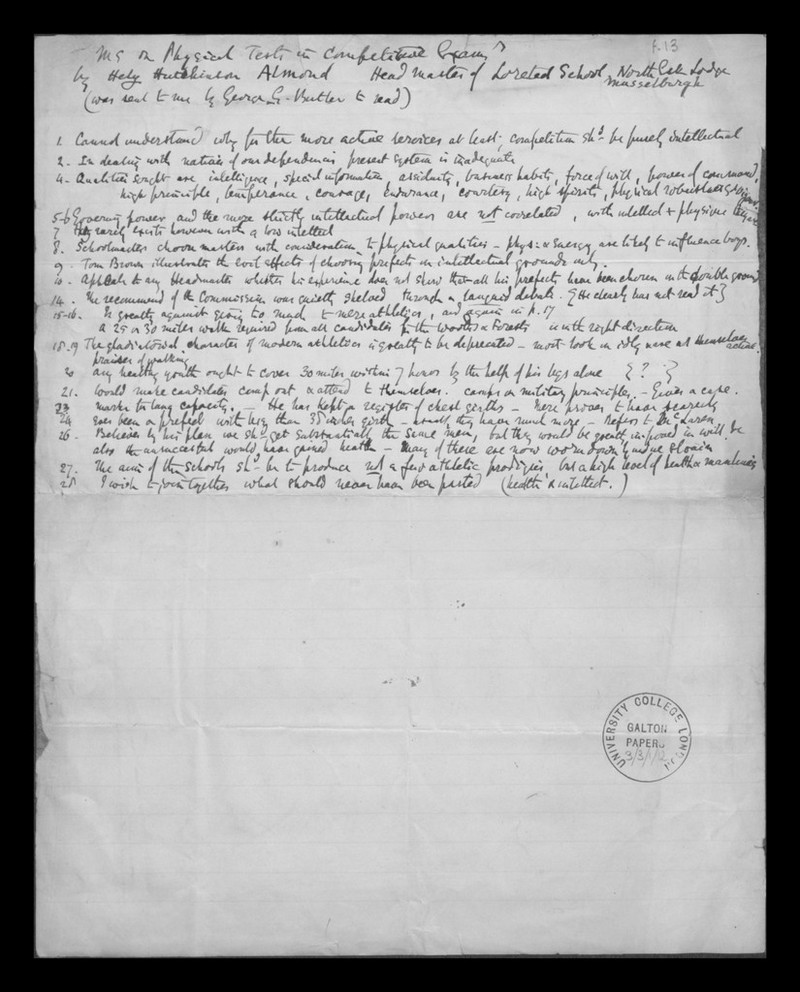 f.13
MS on Physical Tests in Competitive Exams
by Hely Hutchinson Almond Head Master of Loretto School, North Esk Lodge
Musselburgh
(was sent to me by George G. Butler to read)
1. Cannot understand why for the more active services at least, competition shd be purely intellectual
2. In dealing with natives of our dependencies present system is inadequate
4. Qualities sought are intelligence, special information, assiduity, business habits, force of will, power of command,
high principle, temperance, courage, endurance, courtesy, high spirits, physical robustness &
5-6 Governing power and the more strictly intellectual powers are not correlated, with intellect & physique
7 They rarely exist however with a low intellect
8. Schoolmasters choose masters with consideration to physical qualities – phys: & energy are likely to influence boys.
9. Tom Brown illustrates the evil effects of choosing prefects on intellectual grounds only.
10. Appeals to any Headmaster whether his experience does not show that all his prefects have been chosen on the double ground
14. The recommend of the Commission was quietly shelved through a languid debate. {He clearly has not read it}
15-16. Is greatly against giving too much to mere athletics, and again in p. 17
a 25 or 30 miles walk required from all candidates for the Woods & Forests is in the right direction
18.19 The gladiatorial character of modern athletics is greatly to be deprecated – most look on idly none act themselves
praises of walking
20 any healthy youth ought to cover 30 miles within 7 hours by the help of his legs alone { ? }
21. Would make candidates camp out & attend to themselves. camps on military principles. – Gives a case.
23 marks for lung capacity. – He has kept a register of chest girths – here proves to have scarcely
24 ever been a prefect with less than 35 inches girth – usually they have much more – Refers to McLaren
26. Believes by his plan we shd get substantially the same men, but they would be greatly improved in will, &c
also the unsuccessful would have gained health – Many of these are now worn down by undue
27. The aim of the schools shd be to produce not a few athletic prodigies, but a high level of health & manliness
28 I wish to join together what should never have been parted (health & intellect.)
UNIVERSITY COLLEGE LONDON
GALTON
PAPERS